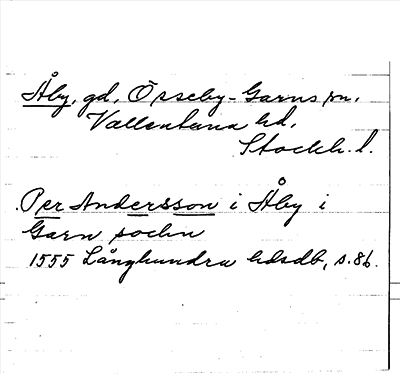 Åby, gd, Össeby-Garns sn,
Vallentuna hd,
Stockh. l.
Per Andersson i Åby i
Garn sochn
1555 Långhundra hdsdb, s. 86.